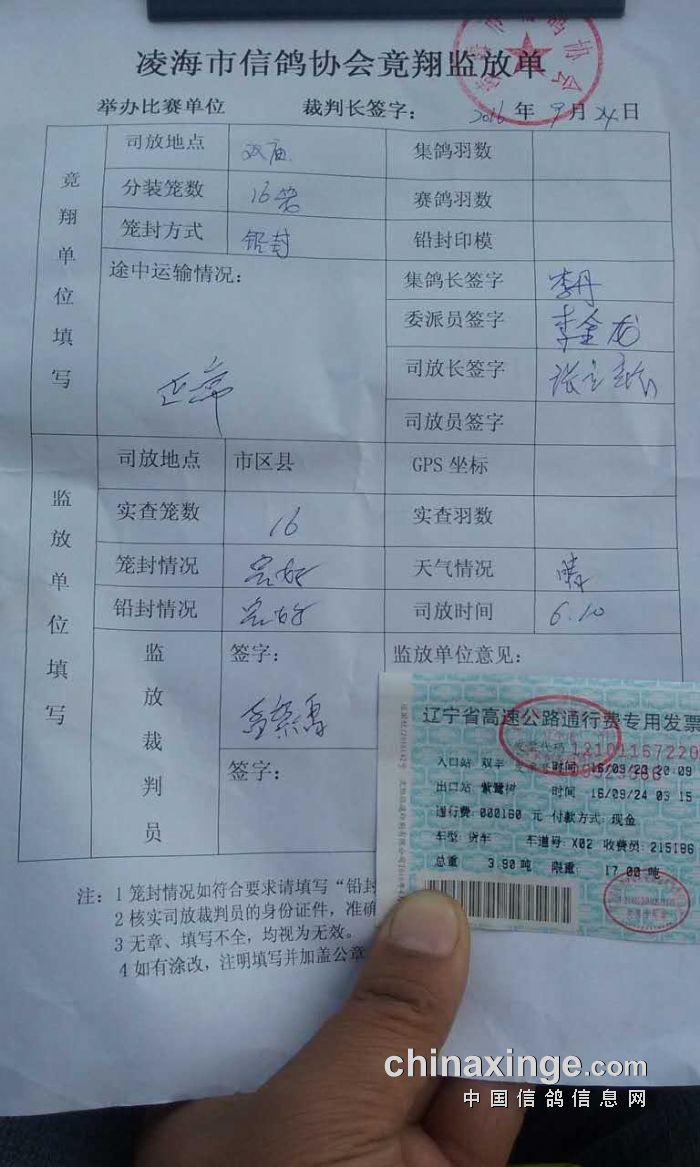 凌海市信鸽协会竟翔监放单
举办比赛单位 裁判长签字： 2016年9月24日
竟翔单位填写
司放地点 双庙 集鸽羽数
分装笼数 16笼 赛鸽羽数
笼封方式 铅封 铅封印模
途中运输情况： 正常
集鸽长签字 李丹
委派员签字 李金龙
司放长签字
司放员签字
监放单位填写
司放地点 市区县 GPS 坐标
实查笼数 16 实查羽数
笼封情况 完好 天气情况 晴
铅封情况 完好 司放时间 6.10
监放裁判员
签字： 监放单位意见：
签字：
注：1 笼封情况如符合要求请填写“铅封
2 核实司放裁判员的身份证件，准确
3 无章、填写不全，均视为无效。
4 如有涂改，注明填写并加盖公章
辽宁省高速公路通行费专用发票
发票代码 12101157220
入口站 双辛 时间 16/09/23 20:09
出口站 紫鹭树 时间 16/09/24 03 15
通行费：000160 元 付款方式：现金
车型：货车 车道号：X02 收费员：215186
总重 3.90 吨 限重： 17.00 吨
chinaxinge.com
中国信鸽信息网